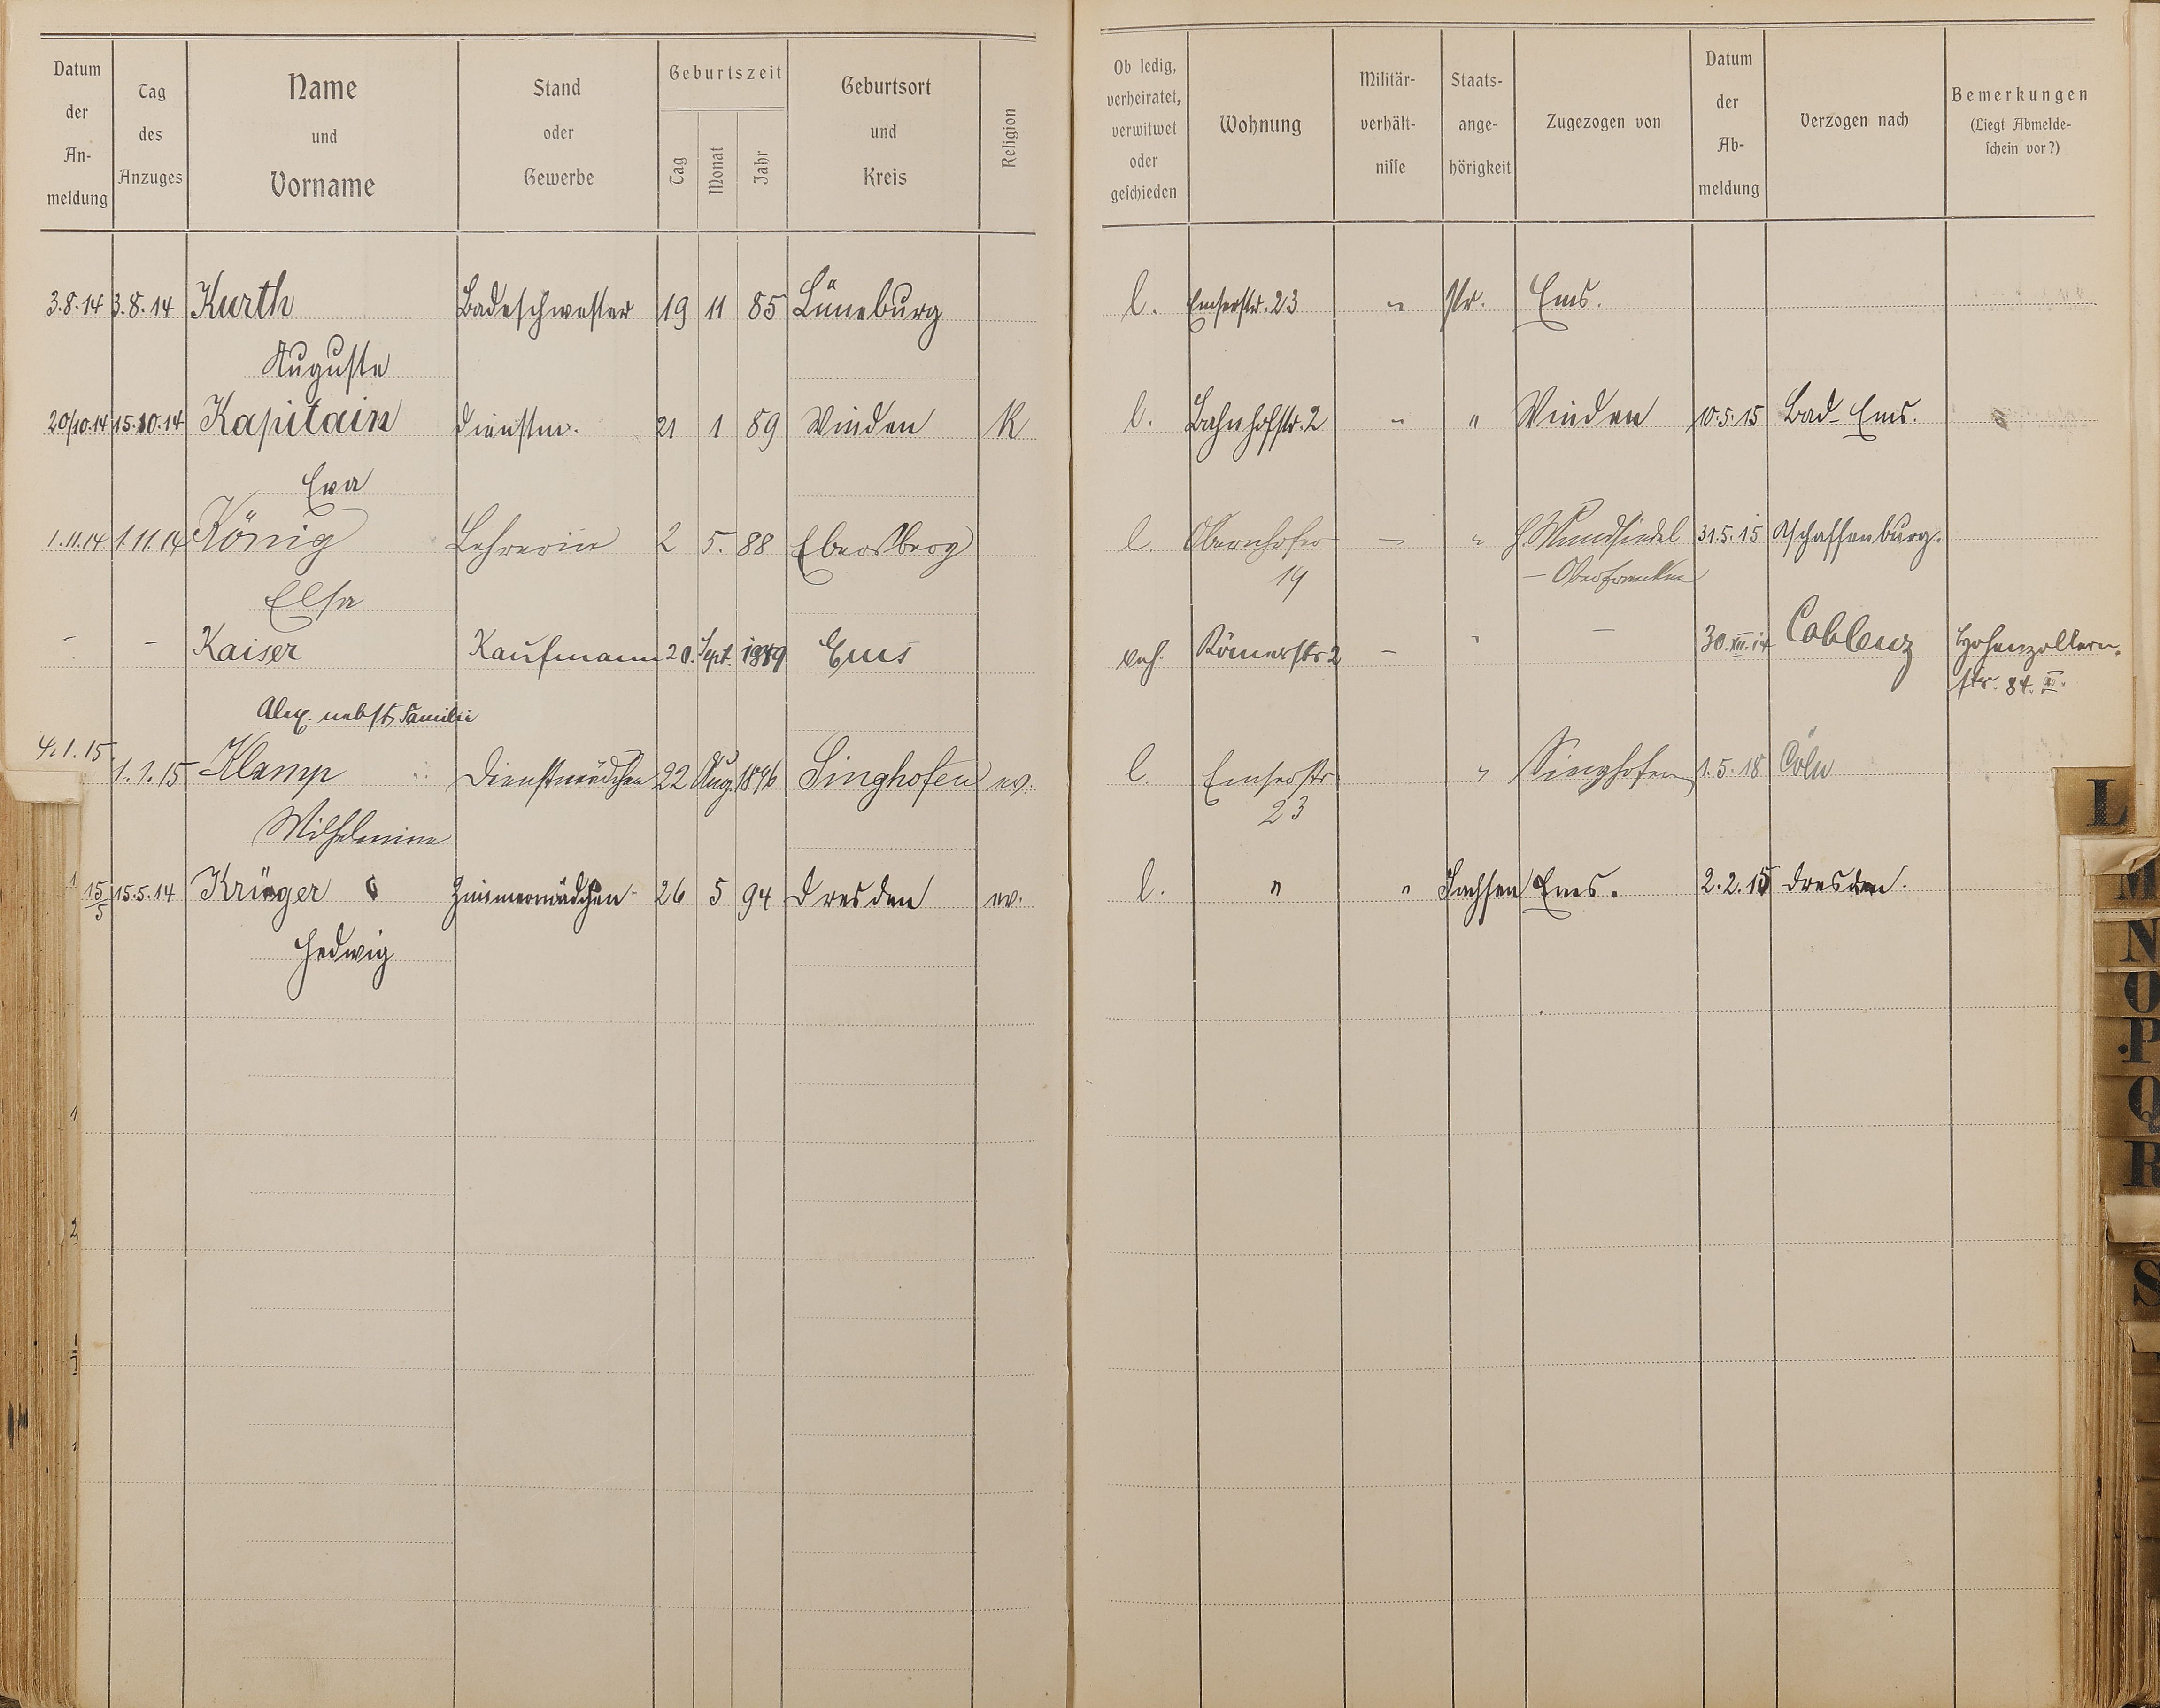 Datum der An- meldung
Tag des Anzuges
Name und Vorname
Stand oder Gewerbe
Geburtszeit
Tag Monat Jahr
Geburtsort und Kreis
Religion
Ob ledig, verheiratet, verwitwet oder geschieden
Wohnung
Militär- verhält- nisse
Staats- ange- hörigkeit
Zugezogen von
Datum der Ab- meldung
Verzogen nach
Bemerkungen (Liegt Abmelde- schein vor?)
3.8.14 3.8.14 Kurth Badeschwester 19 11 85 Lüneburg l. Emserstr. 23 " Pr. Ems.
Auguste
20/10.14 15.10.14 Kapitain Dienstm. 21 1 89 Winden K l. Bahnhofstr. 2 " " Winden 10.5.15 Bad-Ems.
Eva
1.11.14 1.11.14 König Lehrerin 2 5. 88 Ebersberg l. Obernhofer — " Wundsiedel 31.5.15 Aschaffenburg.
Elsa 19 — Oberfranken
- - Kaiser Kaufmann 20. Sept. Ems verh. Römerstr 2 — " — 30.XII.14 Coblenz Hohenzollern-
str. 84.
Alex. nebst Familie
4.1.15 1.1.15 Klamp Dienstmädchen 22 Aug. 1896 Singhofen ev. l. Emserstr " Singhofen 1.5.18 Cöln
Wilhelmine 23
15/5 15.5.14 Krüger Zimmermädchen 26 5 94 Dresden ev. l. " " Sachsen Ems. 2.2.15 Dresden.
Hedwig
L
M
N
O
P
Q
R
S